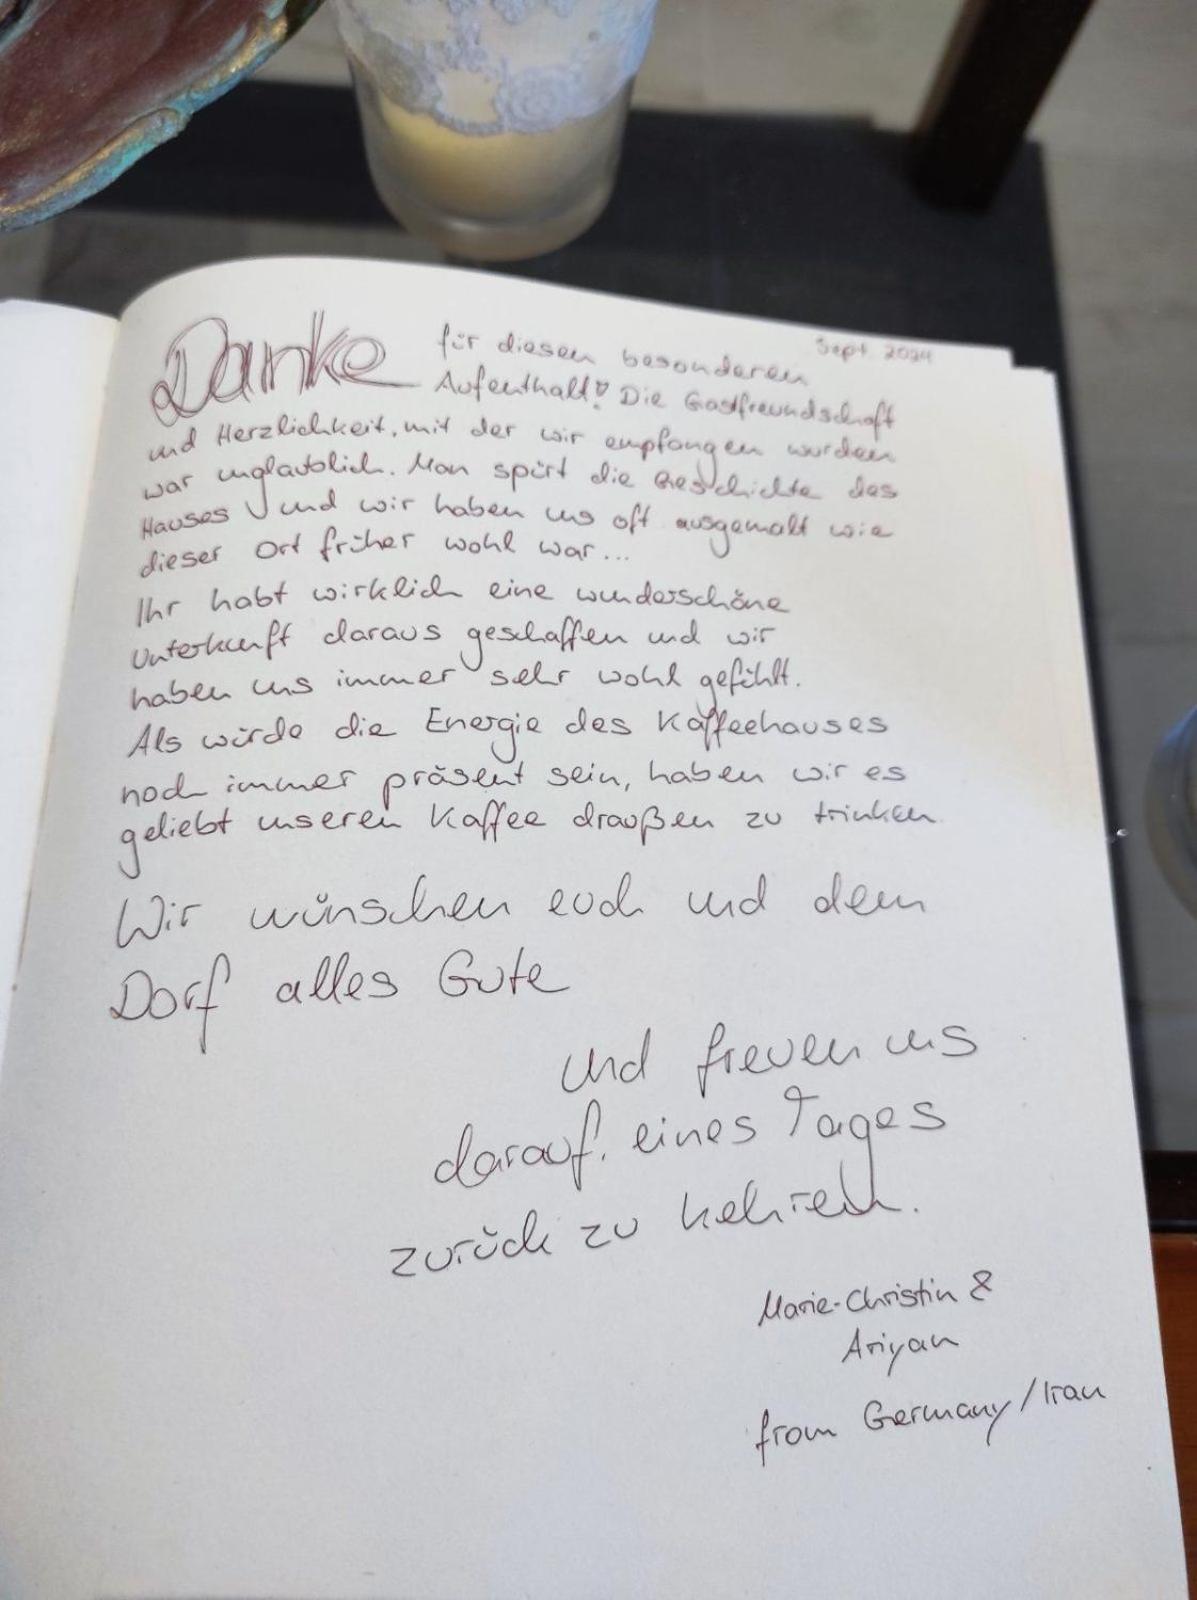 Sept. 2024
Danke für diesen besonderen
Aufenthalt! Die Gastfreundschaft
und Herzlichkeit, mit der wir empfangen wurden
war unglaublich. Man spürt die Geschichte des
Hauses und wir haben uns oft ausgemalt wie
dieser Ort früher wohl war...
Ihr habt wirklich eine wunderschöne
Unterkunft daraus geschaffen und wir
haben uns immer sehr wohl gefühlt.
Als würde die Energie des Kaffeehauses
noch immer präsent sein, haben wir es
geliebt unseren Kaffee draußen zu trinken.
Wir wünschen euch und dem
Dorf alles Gute
und freuen uns
darauf, eines Tages
zurück zu kehren.
Marie-Christin &
Ariyan
from Germany/Iran